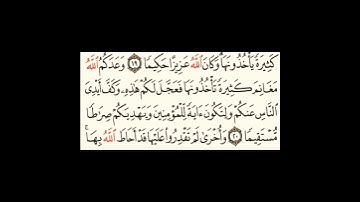 كَثِيرَةً يَأْخُذُونَهَا ۗ وَكَانَ ٱللَّهُ عَزِيزًا حَكِيمًا ١٩ وَعَدَكُمُ ٱللَّهُ
مَغَانِمَ كَثِيرَةً تَأْخُذُونَهَا فَعَجَّلَ لَكُمْ هَٰذِهِۦ وَكَفَّ أَيْدِىَ
ٱلنَّاسِ عَنكُمْ وَلِتَكُونَ ءَايَةً لِّلْمُؤْمِنِينَ وَيَهْدِيَكُمْ صِرَٰطًا
مُّسْتَقِيمًا ٢٠ وَأُخْرَىٰ لَمْ تَقْدِرُوا۟ عَلَيْهَا قَدْ أَحَاطَ ٱللَّهُ بِهَا ۚ